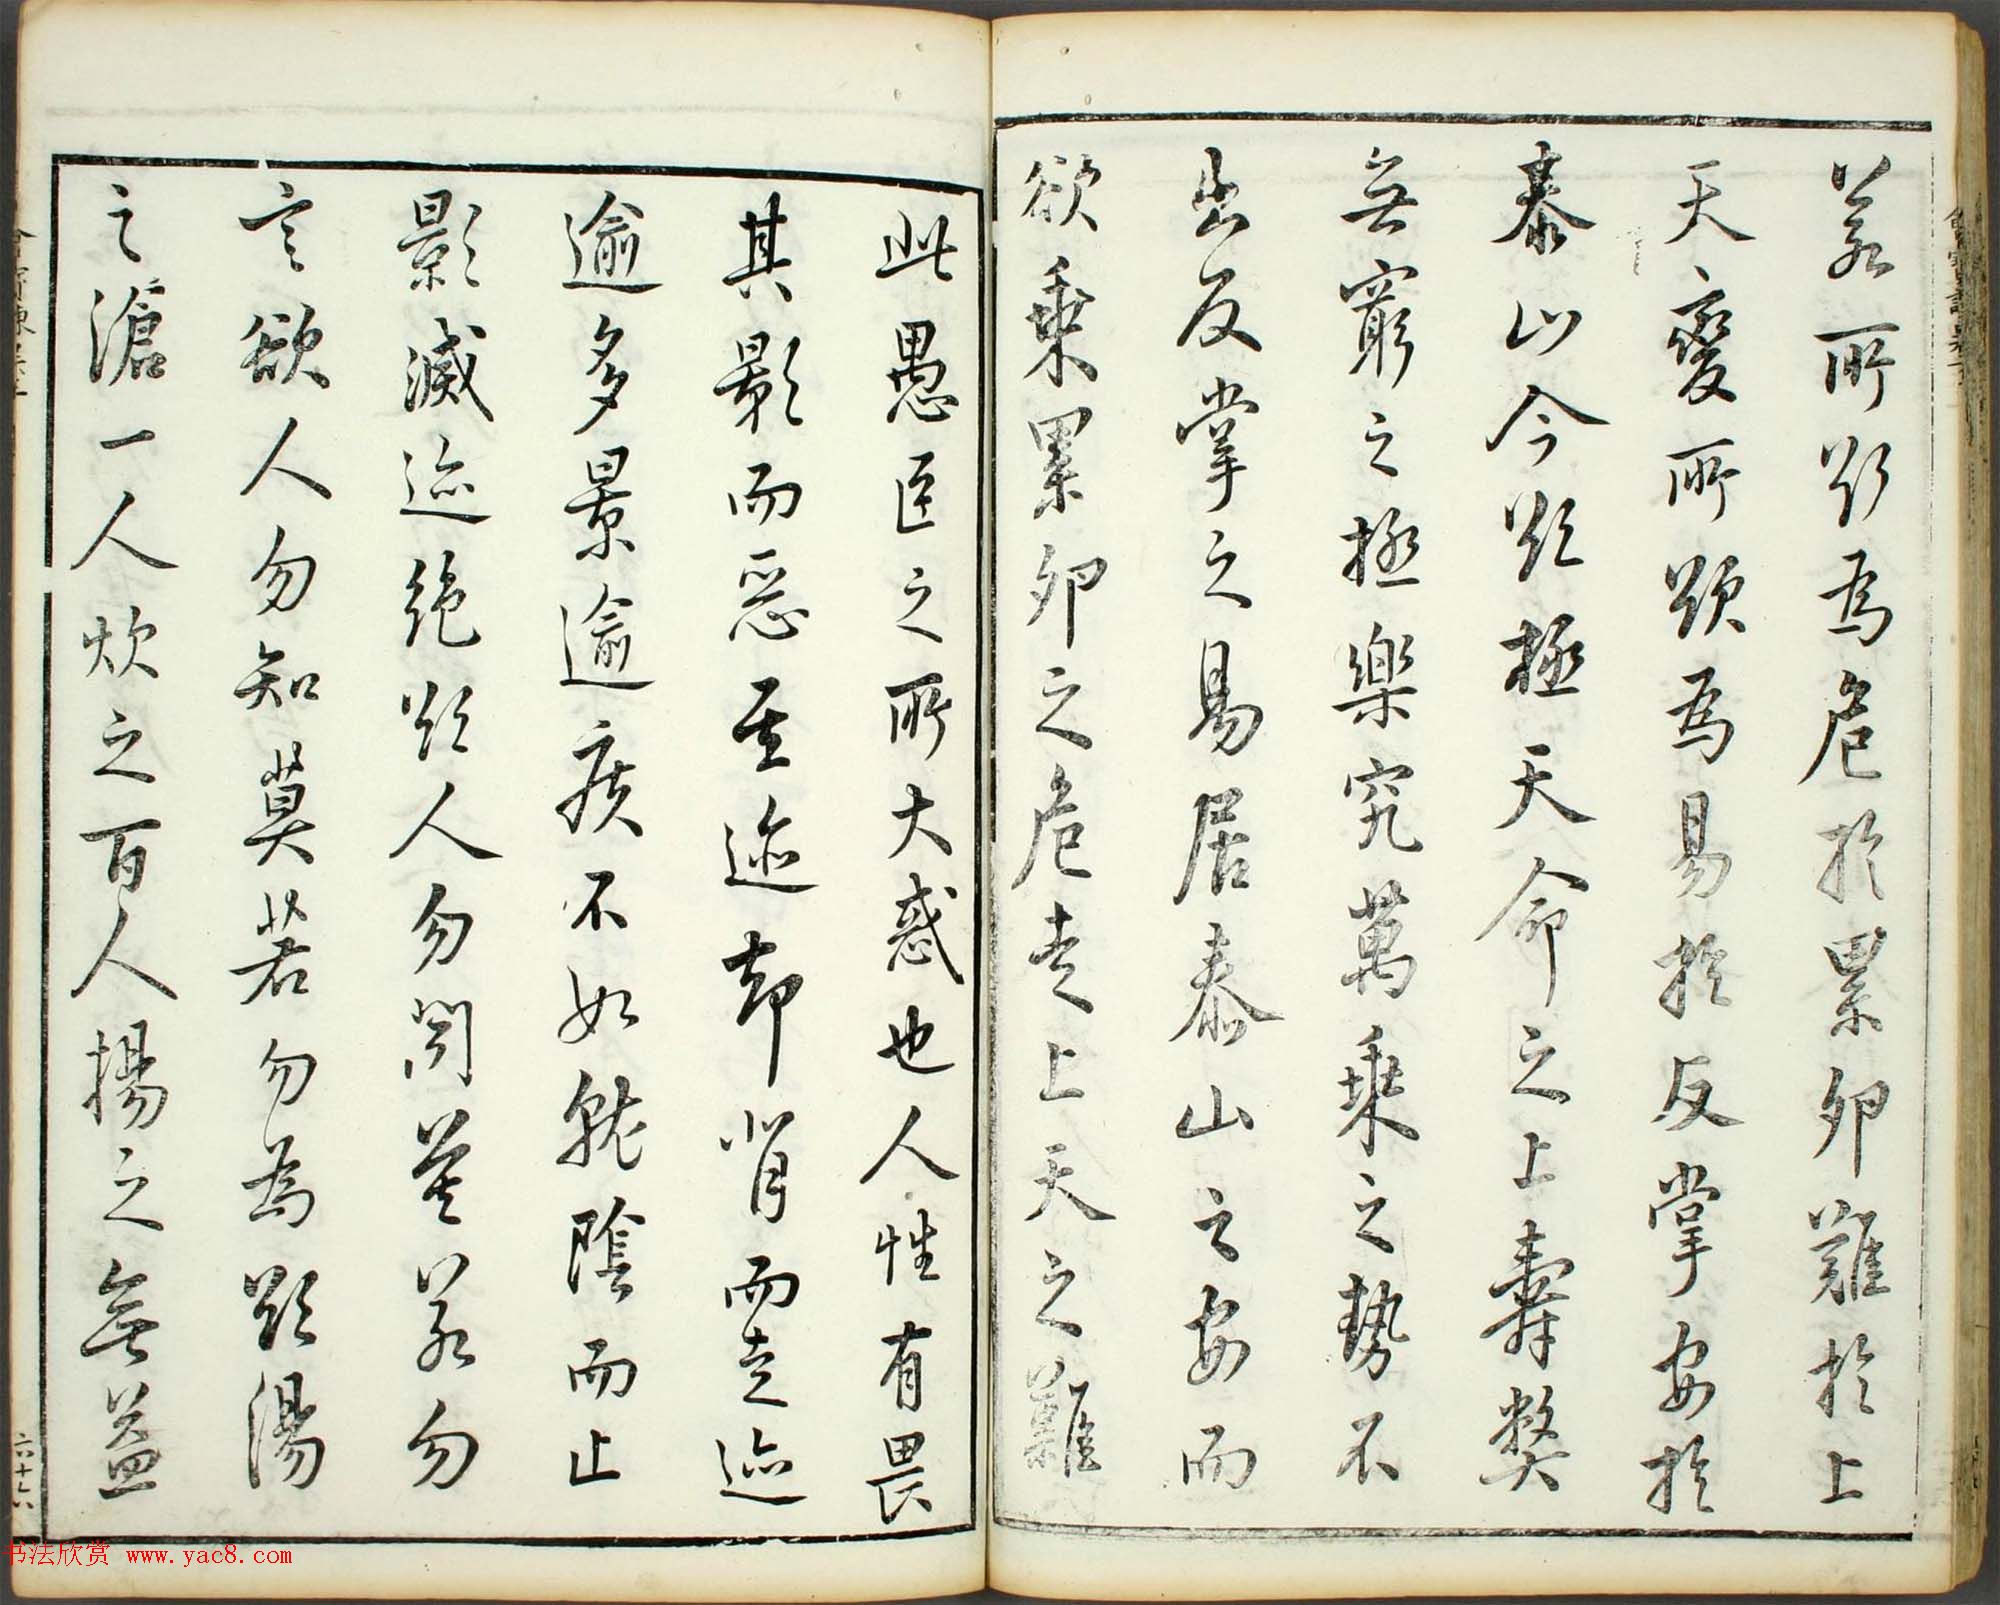 若所欲為危於累卵難於上
天變所欲為易於反掌安於
泰山今欲極天命之上壽獘
無窮之極樂究萬乘之勢不
出反掌之易居泰山之安而
欲乘累卵之危走上天之難
此愚臣之所大惑也人性有畏
其影而惡其迹却背而走迹
逾多景逾疾不如就陰而止
影滅迹絶欲人勿聞莫若勿
言欲人勿知莫若勿為欲湯
之滄一人炊之百人揚之無益
六十六
书法欣赏 www.yac8.com